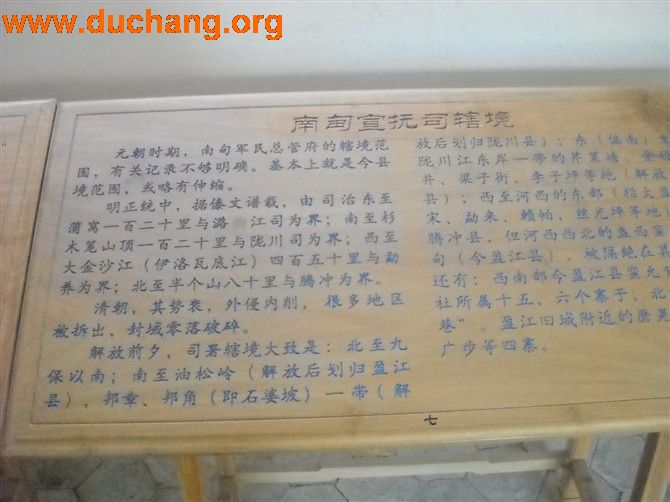 www.duchang.org
南甸宣抚司辖境
元朝时期，南甸军民总管府的辖境范
围，有关记录不够明确。基本上就是今县
境范围，或略有伸缩。
明正统中，据傣文谱载，由司治东至
蒲窝一百二十里与潞江司为界；南至杉
木笼山顶一百二十里与陇川司为界；西至
大金沙江（伊洛瓦底江）四百五十里与勐
养为界；北至半个山八十里与腾冲为界。
清朝，其势衰，外侵内削，很多地区
被拆出，封域零落破碎。
解放前夕，司署辖境大致是：北至九
保以南；南至油松岭（解放后划归盈江
县）、邦章、邦角（即石婆坡）一带（解
放后划归陇川县）；东（偏南）至
陇川江东岸一带的芹菜塘、金
井、梁子街、李子坪等地（解放
县）；西至河西的东部（指大
宋、勐来、赖帕，丝光坪等地
腾冲县，但河西西北的戛西至
甸（今盈江县），被隔绝在其
还有：西南部今盈江县蛮九
社所属十五、六个寨子；北
巷”。盈江旧城附近的唐
广步等四寨。
七